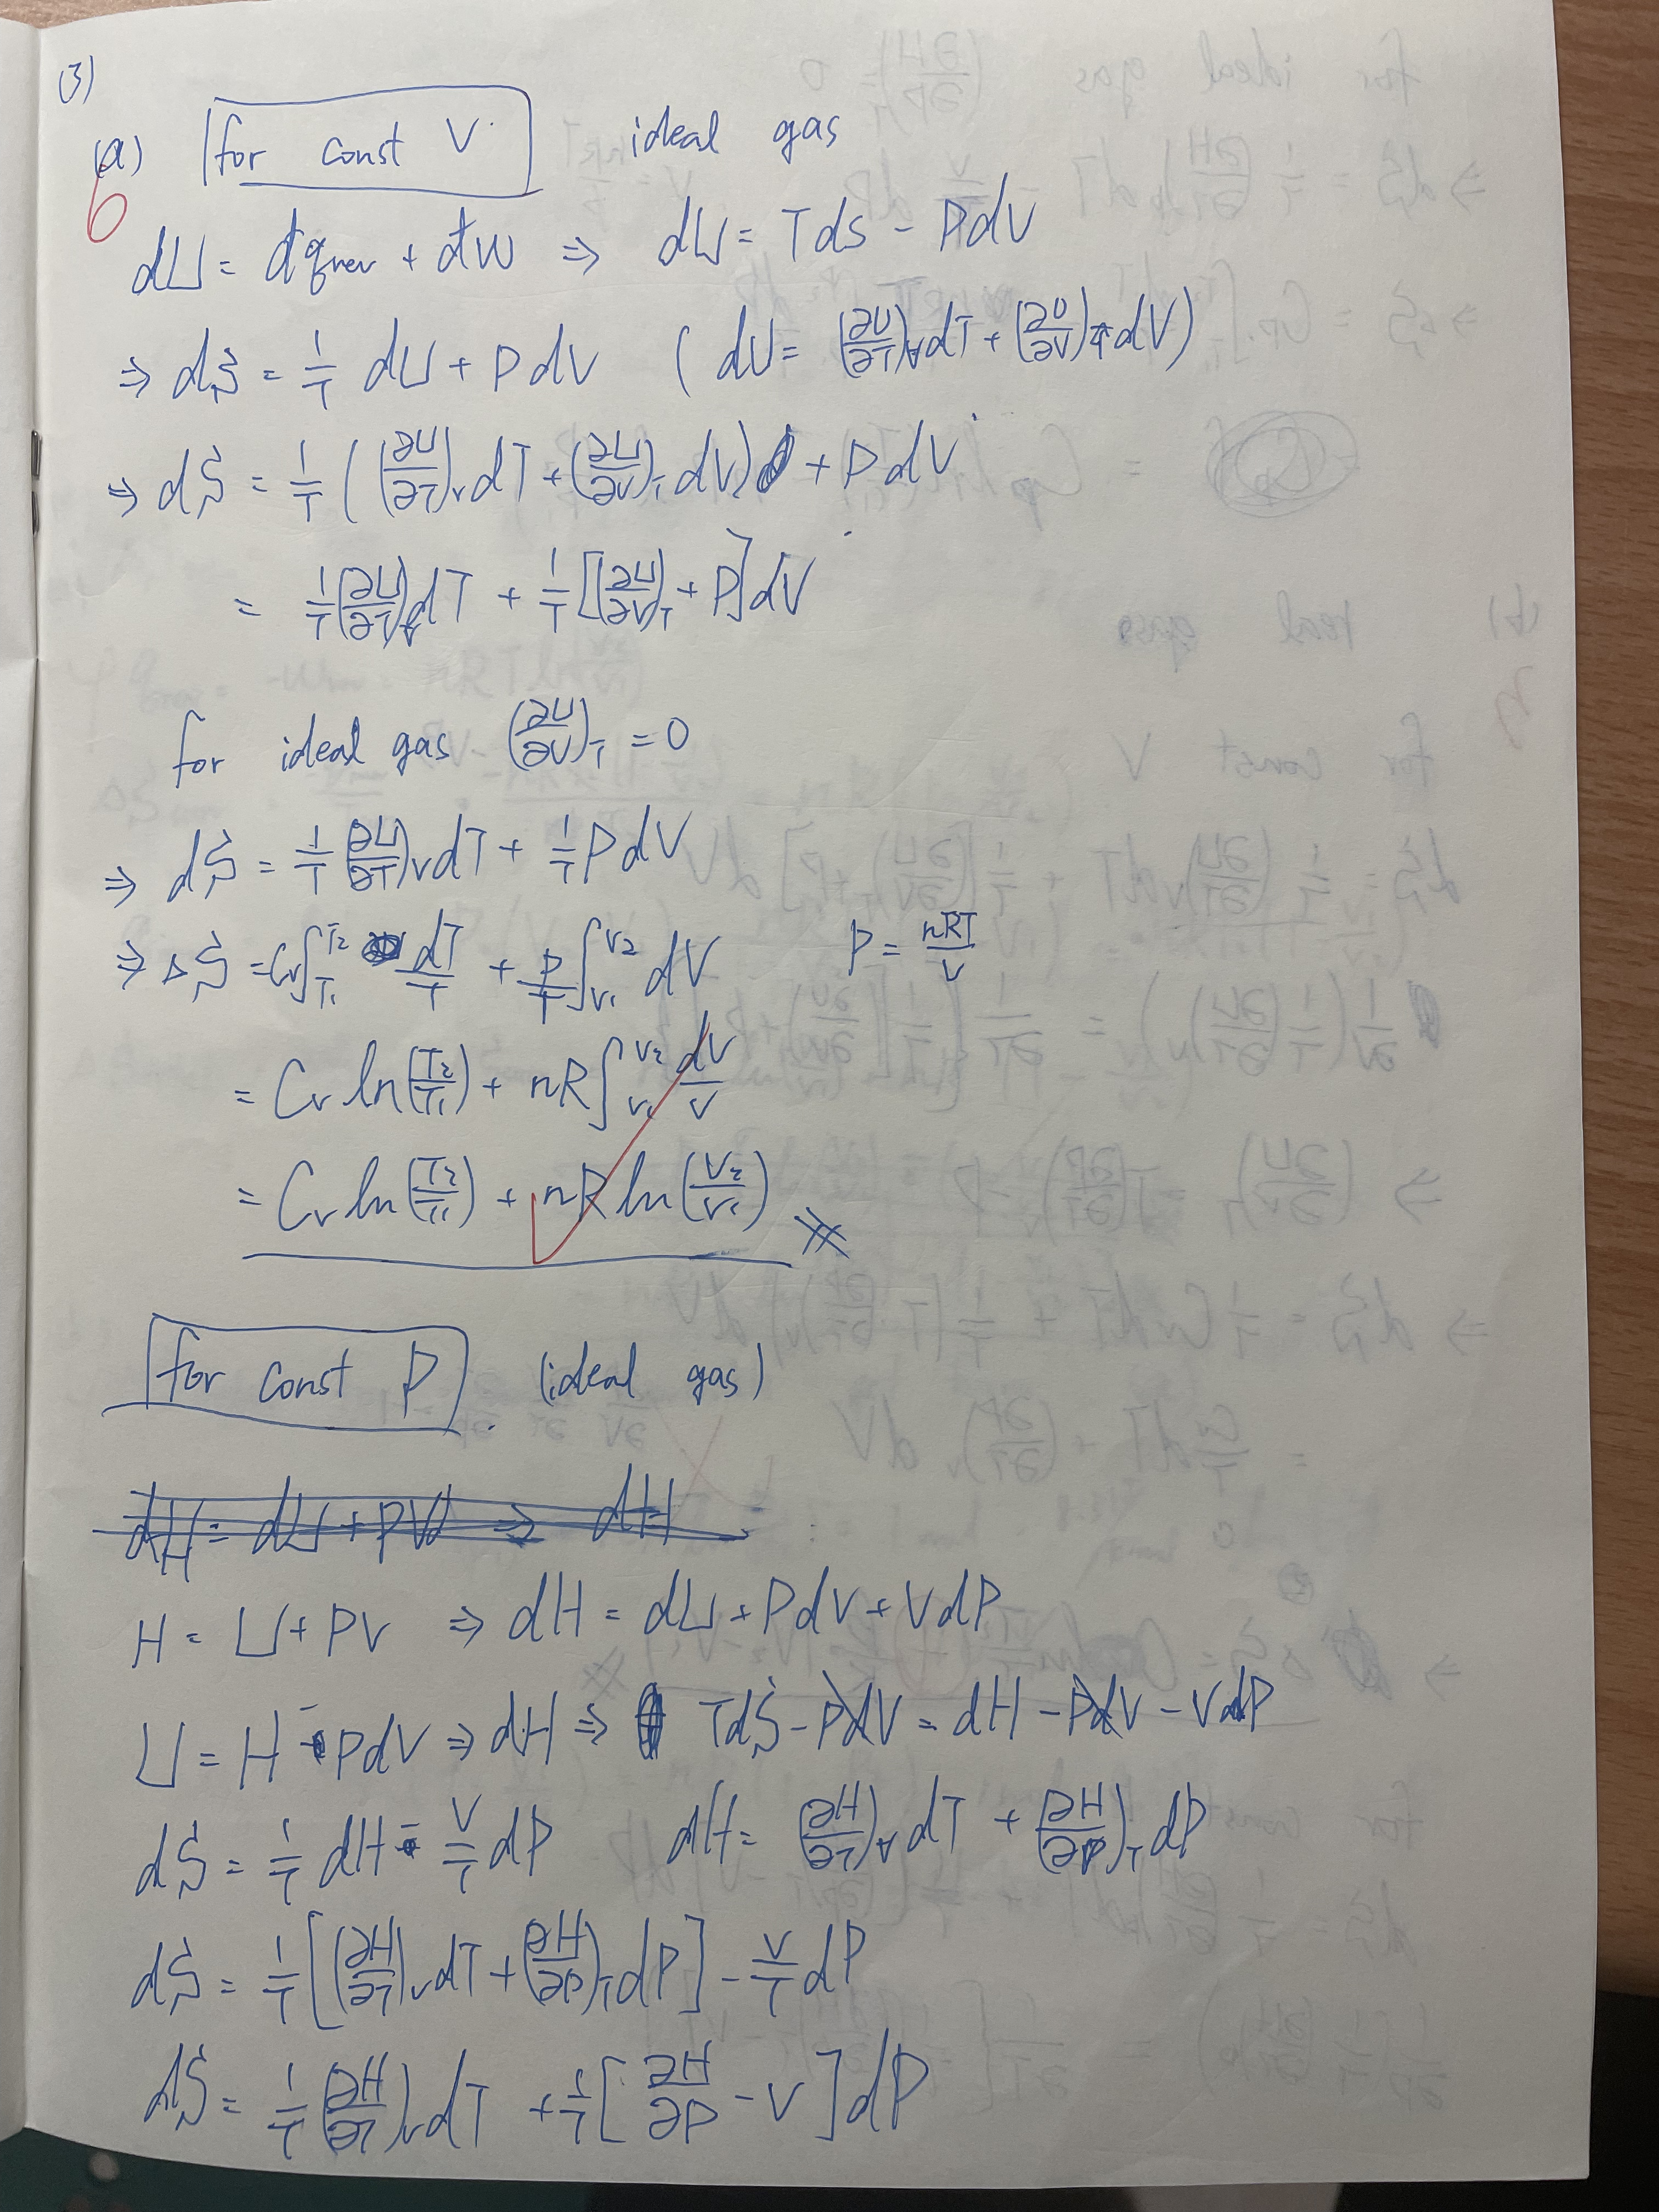 (3)
(a) for const V ideal gas
6
dU = đq_rev + đw ⇒ dU = TdS - PdV
⇒ dS = 1/T dU + PdV (dU = (∂U/∂T)_V dT + (∂U/∂V)_T dV)
⇒ dS = 1/T ((∂U/∂T)_V dT + (∂U/∂V)_T dV) + PdV
= 1/T (∂U/∂T)_V dT + 1/T [(∂U/∂V)_T + P] dV
for ideal gas (∂U/∂V)_T = 0
⇒ dS = 1/T (∂U/∂T)_V dT + 1/T P dV
⇒ ΔS = Cv ∫_T1^T2 dT/T + P/T ∫_V1^V2 dV P = nRT/V
= Cv ln(T2/T1) + nR ∫_V1^V2 dV/V
= Cv ln(T2/T1) + nR ln(V2/V1)
for const P (ideal gas)
dH = dU + PV ⇒ dH
H = U + PV ⇒ dH = dU + PdV + VdP
U = H - PdV ⇒ dH ⇒ TdS - PdV = dH - PdV - VdP
dS = 1/T dH - V/T dP dH = (∂H/∂T)_V dT + (∂H/∂P)_T dP
dS = 1/T [(∂H/∂T)_V dT + (∂H/∂P)_T dP] - V/T dP
dS = 1/T (∂H/∂T)_V dT + 1/T [∂H/∂P - V] dP